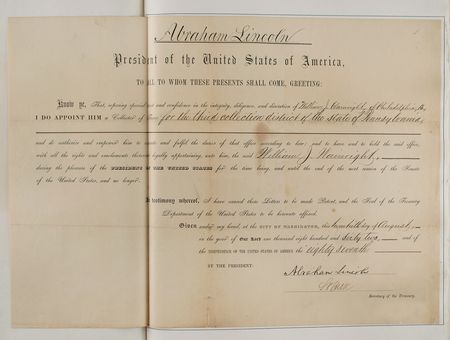 Abraham Lincoln
President of the United States of America,
TO ALL TO WHOM THESE PRESENTS SHALL COME, GREETING:
Know ye, That, reposing special trust and confidence in the integrity, diligence, and discretion of William J. Wainwright, of Philadelphia, Pa
I DO APPOINT HIM a Collector of Taxes for the third collection district of the State of Pennsylvania,
and do authorize and empower him to execute and fulfil the duties of that office according to law; and to have and to hold the said office,
with all the rights and emoluments thereunto legally appertaining, unto him, the said William J. Wainwright,
during the pleasure of the PRESIDENT OF THE UNITED STATES for the time being, and until the end of the next session of the Senate
of the United States, and no longer.
In testimony whereof, I have caused these Letters to be made Patent, and the Seal of the Treasury
Department of the United States to be hereunto affixed.
Given under my hand, at the CITY OF WASHINGTON, this twentieth day of August,
in the year of Our Lord one thousand eight hundred and sixty two and of
the INDEPENDENCE OF THE UNITED STATES OF AMERICA the eighty seventh
BY THE PRESIDENT:
Abraham Lincoln
Secretary of the Treasury.